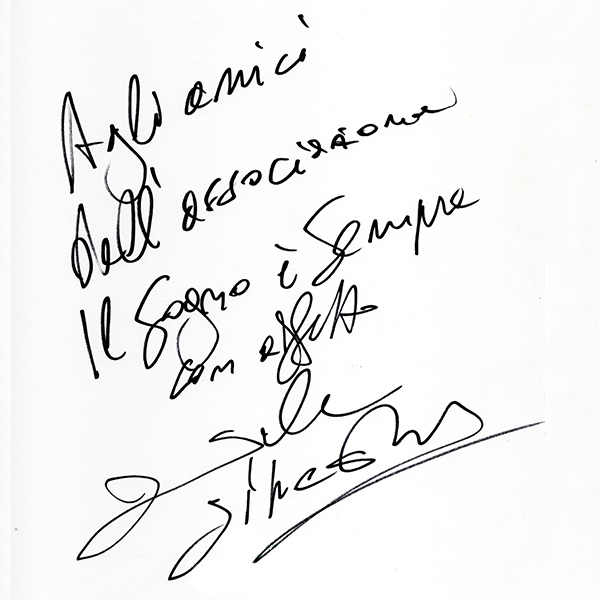 Agli amici
dell'associazione
Il Sogno è Sempre
con affetto